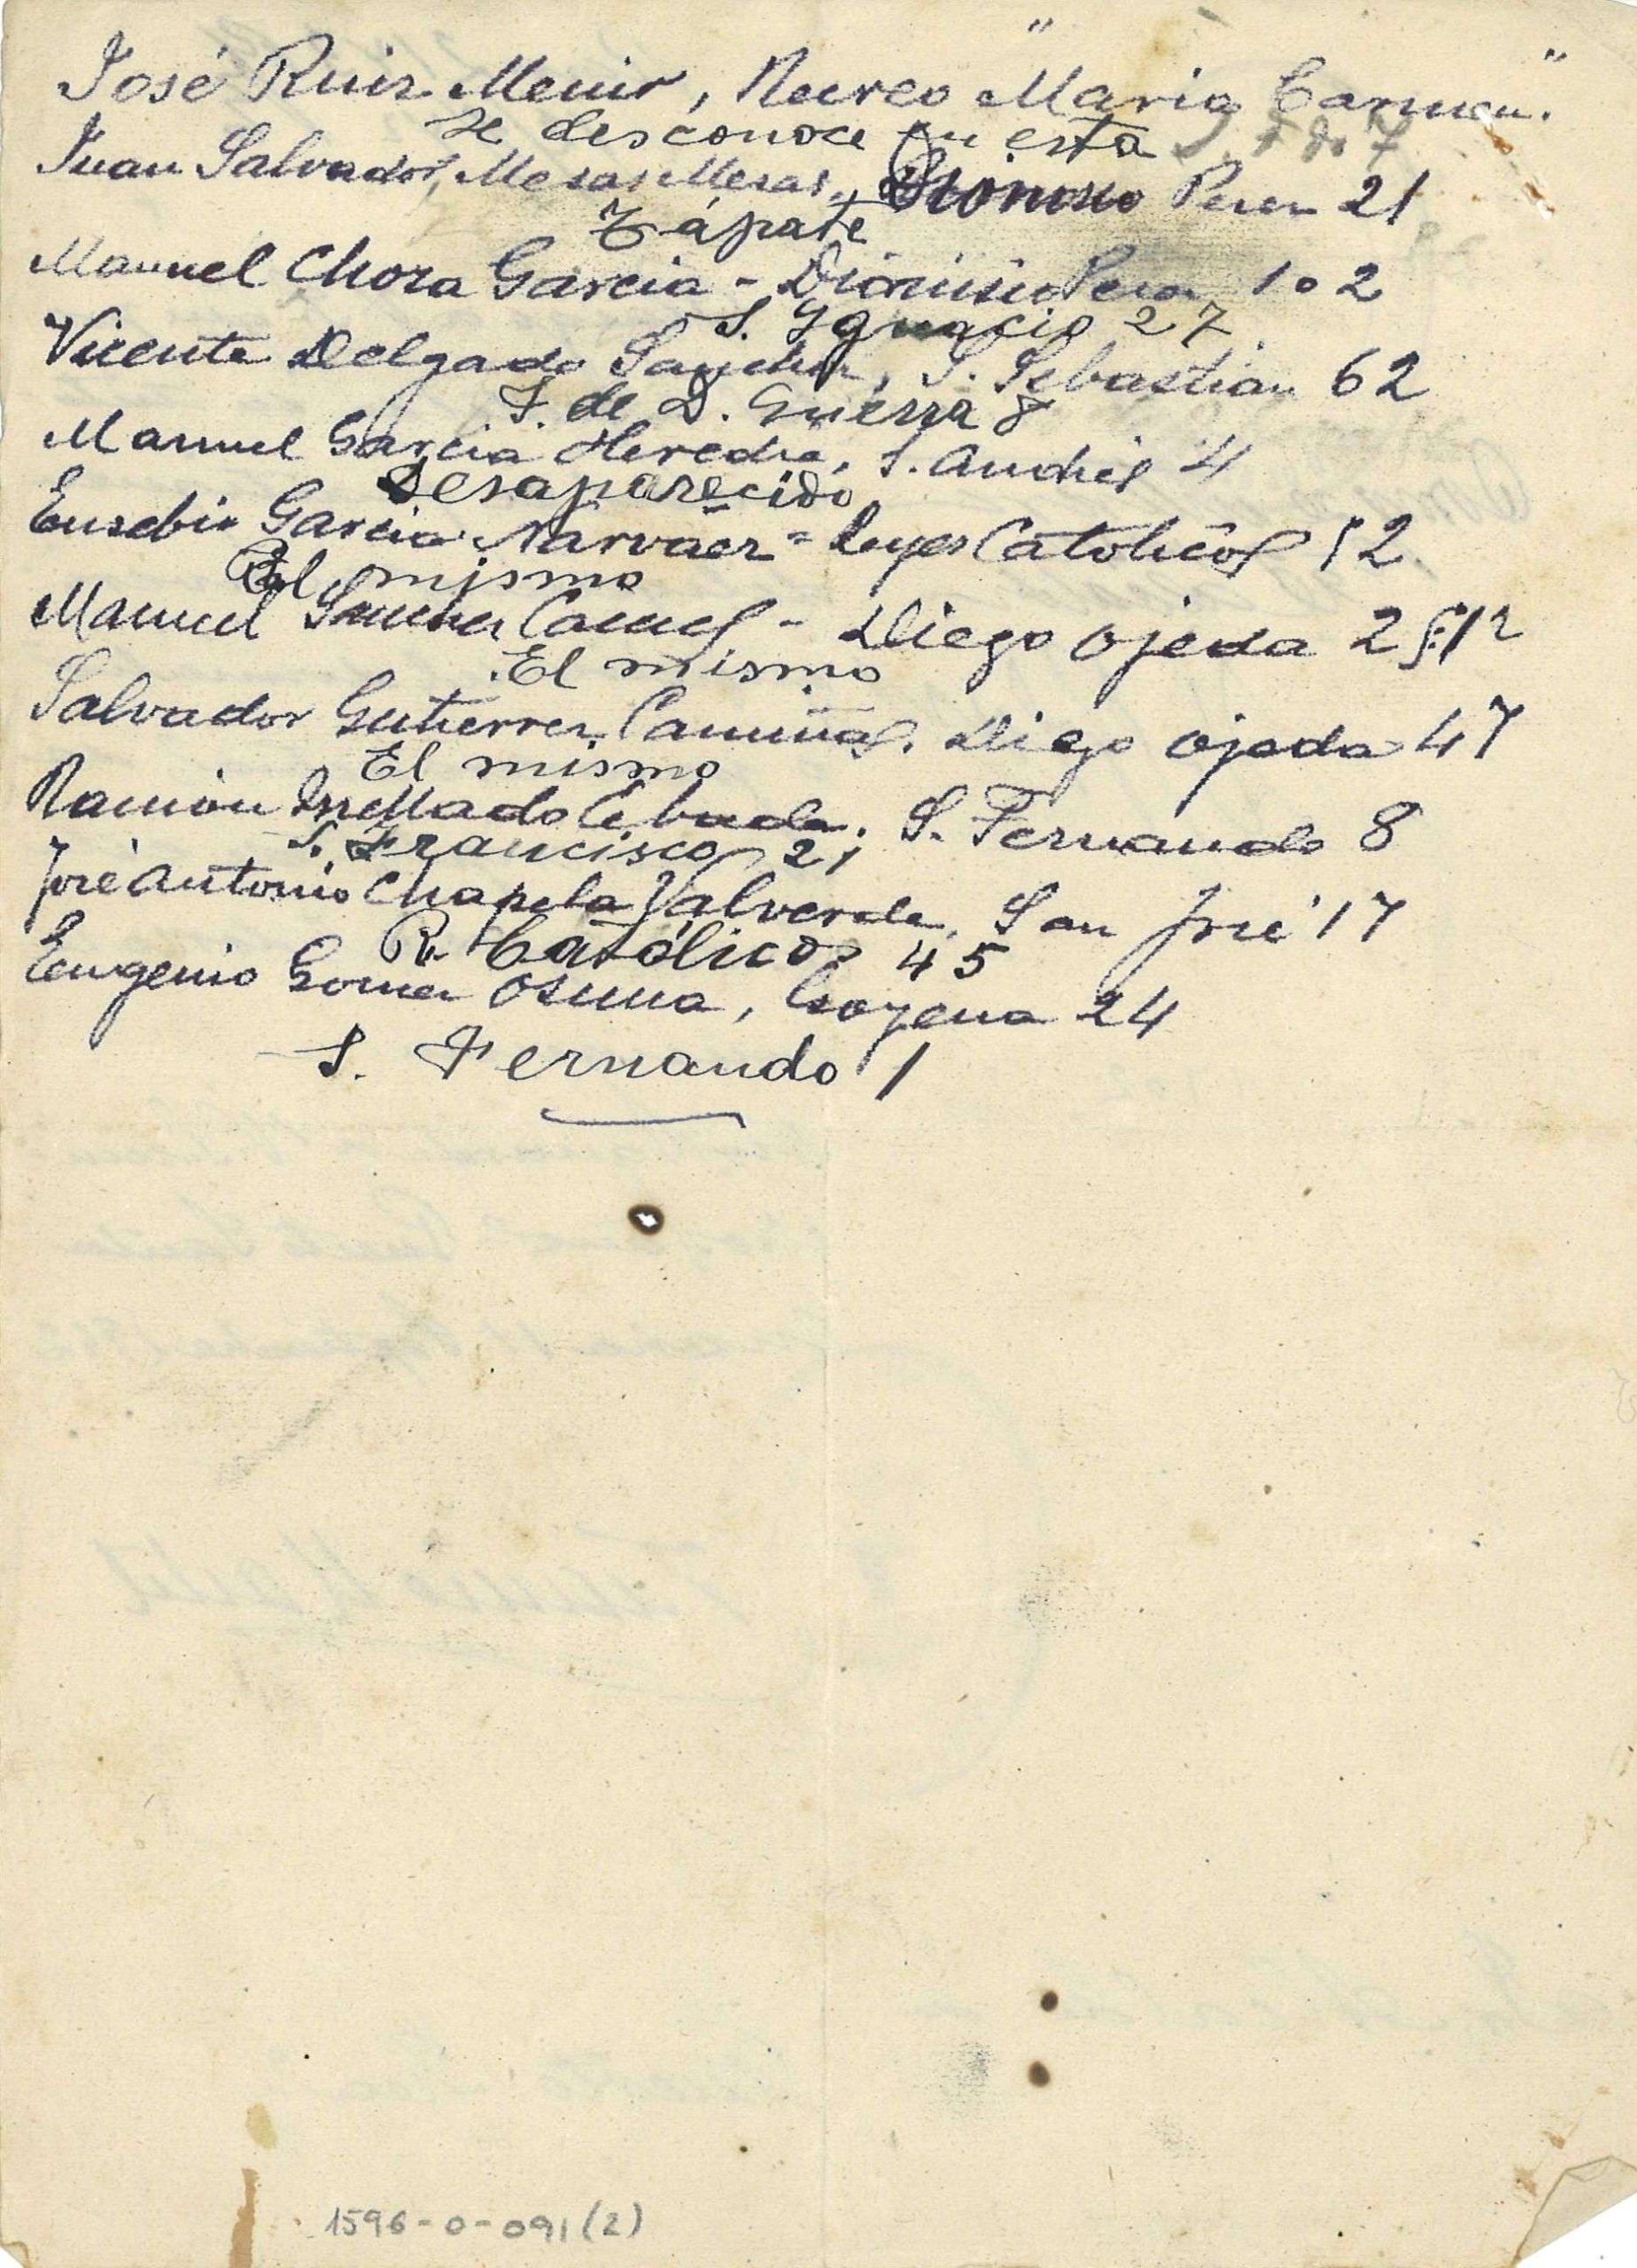 José Ruiz Menir, Recreo "Maria Carmen".
Se desconoce en esta
Juan Salvador, Mesas Mesas, Dionisio Perez 21
Zápate
Manuel Choza Garcia - Dionisio Perez 102
S. Ygnacio 27
Vicente Delgado Sanchez, S. Sebastian 62
J. de D. Guerra 8
Manuel Garcia Heredia, S. Andrés 4
Desaparecido
Eusebio Garcia Narváez - Reyes Católicos 12
El mismo
Manuel Sanchez - Diego Ojeda 2
El mismo
Salvador Gutierrez Camiñas. Diego Ojeda 47
El mismo
Ramón Mellado S. Fernando 8
S. Francisco 21
José Antonio Chapela Valverde, San José 17
R. Católicos 45
Eugenio Gomez Osuna, Goyena 24
S. Fernando 1
1596-0-091(2)